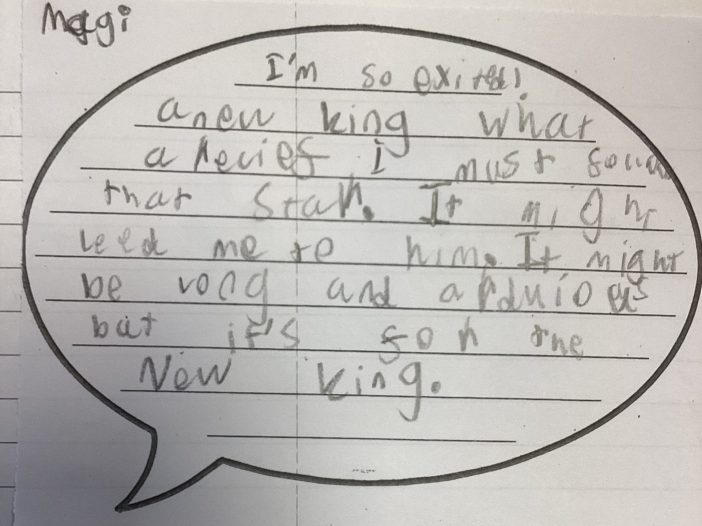 Magi
I'm so exited!
a new king what
a relief I must
that star. It might
leed me to him. It might
be long and arduious
but it's for the
New king.